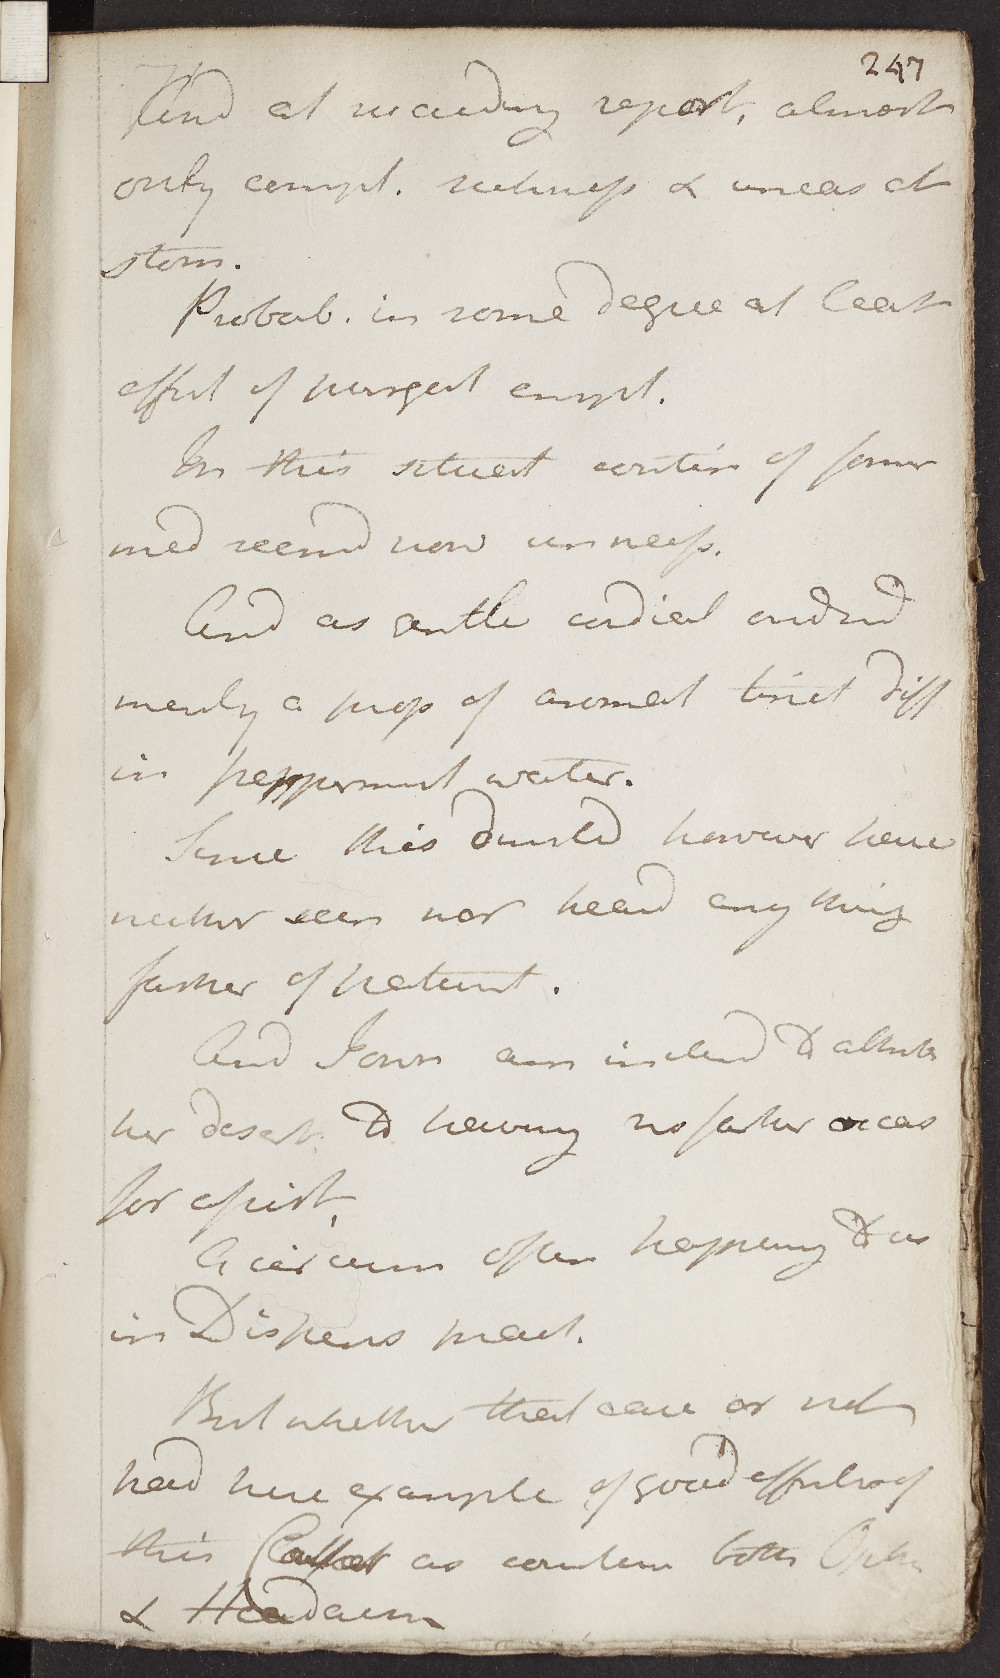 247
And at reading report, almost
only compl. sickness & uneas at
stom.
Probab. in some degree at least
effect of purgat empl.
In this situat contin of former
med seemd now un necess.
And as gentle cordial ordred
merely a prop of aromat tinct diff
in peppermint water.
Since this dismisd however have
neither seen nor heard any thing
farther of patient.
And I own am inclind to attrib
her desert. to having no farther occas
for assist,
A circum often happening to us
in Dispens pract.
But whether that case or not
had here example of good effects of
this as both Opth
& Headachm